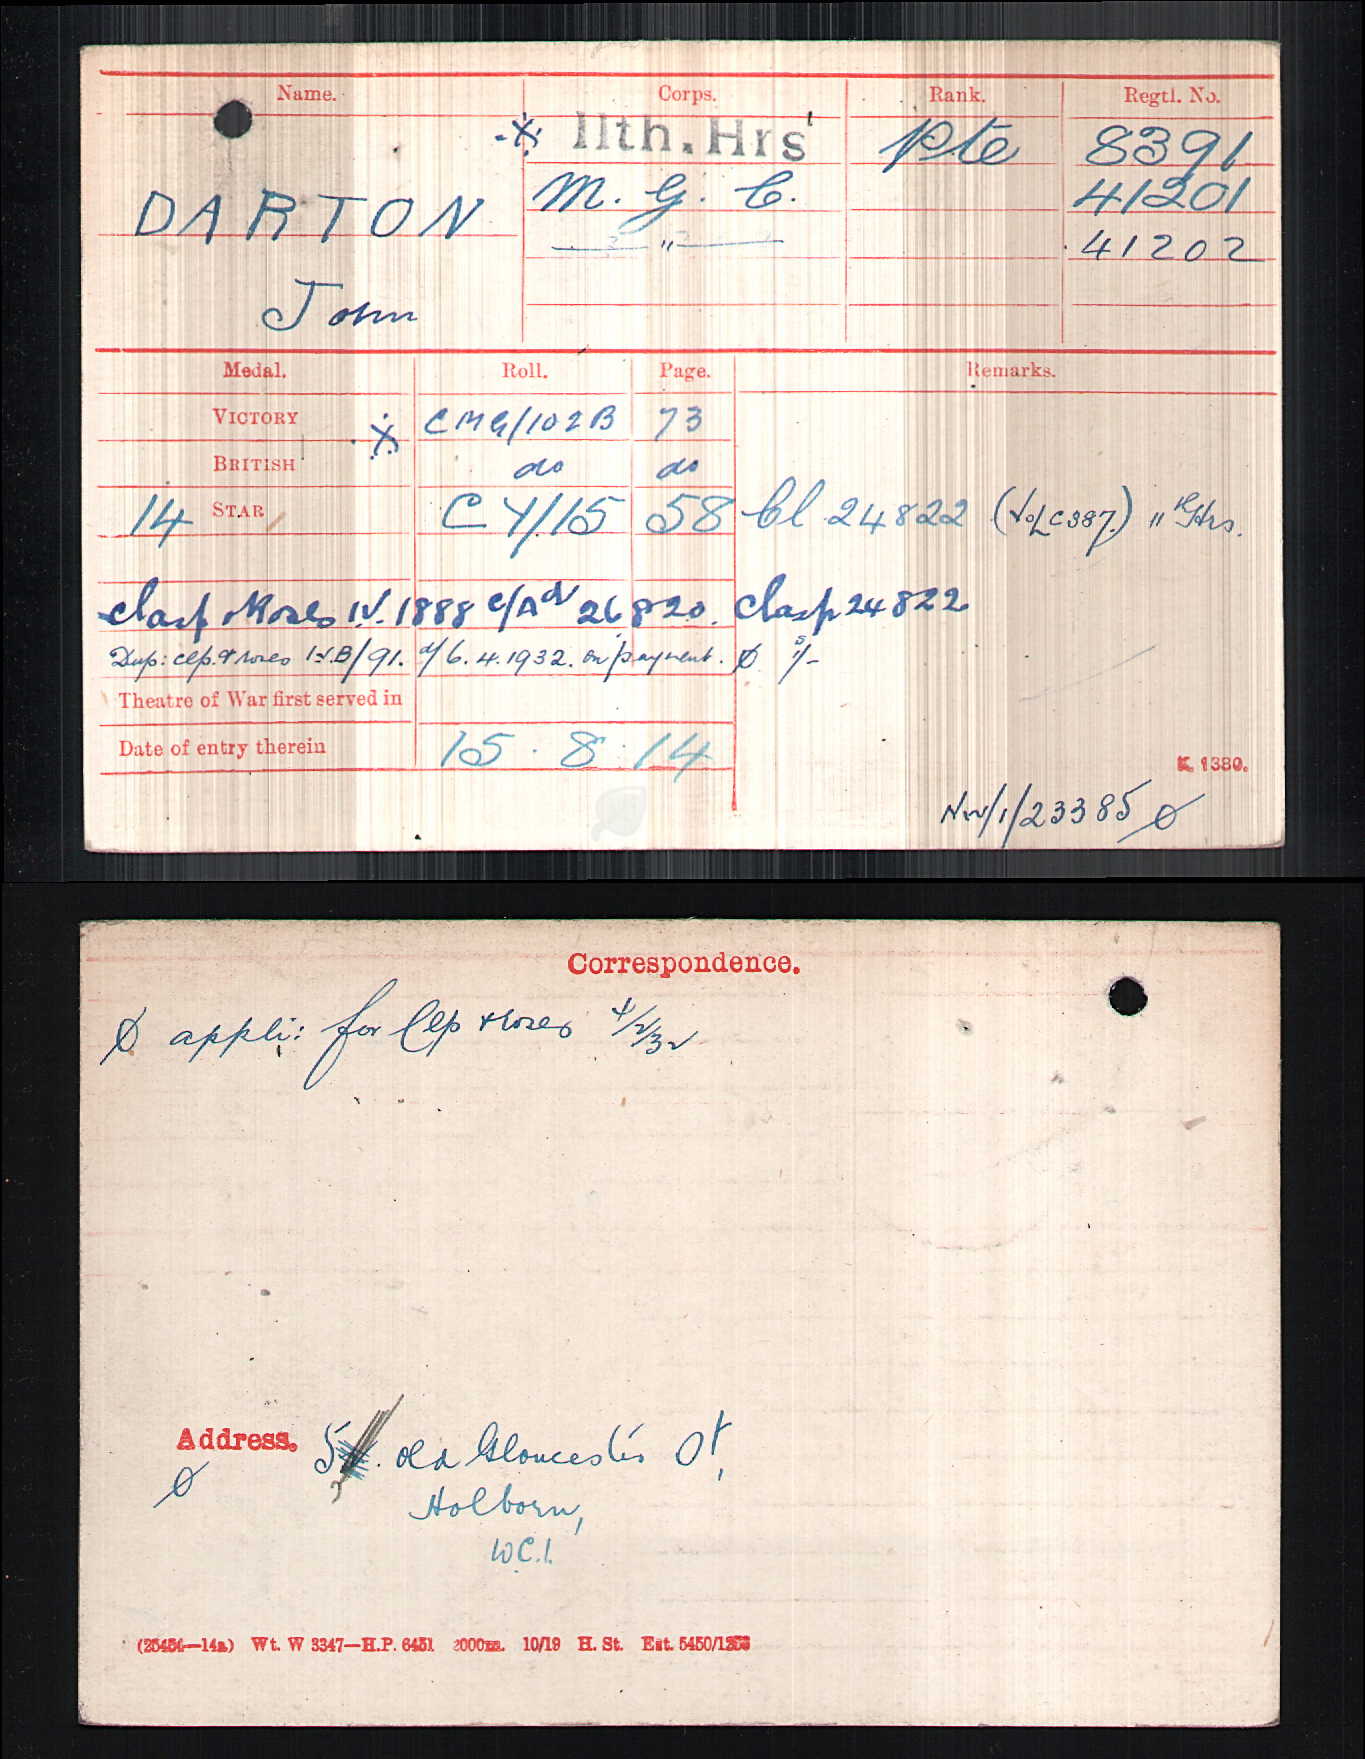 Name. Corps. Rank. Regtl. No.
※ 11th. Hrs Pte 8391
DARTON M. G. C. 41201
" 41202
John
Medal. Roll. Page. Remarks.
VICTORY ※ CMG/102B 73
BRITISH do do
14 STAR C Y/15 58 Cl 24822 (Vol C387) 11th Hrs.
Clasp & Roses IV. 1888 c/Ad 26820. Clasp 24822
Dup: clp. & roses IV.B/91. d/6.4.1932. on payment. Ø 1/-
Theatre of War first served in
Date of entry therein 15.8.14
K. 1380.
NW/1/23385 Ø
Correspondence.
Ø appli: for Clp & roses 4/2/32
Address. old Gloucester St,
Ø
Holborn,
W.C.1.
Wt. W 3347—H.P. 6451 2000m. 10/19 H. St. Est. 5450/